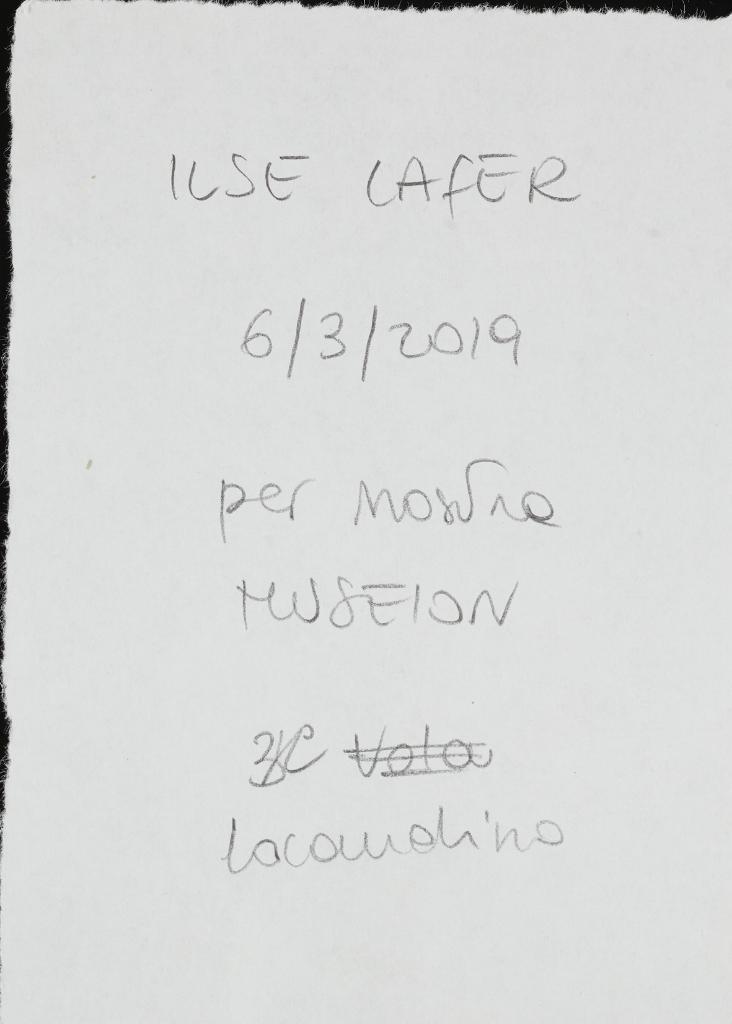 ILSE LAFER
6/3/2019
per mostra
MUSEION
Vola
locandina